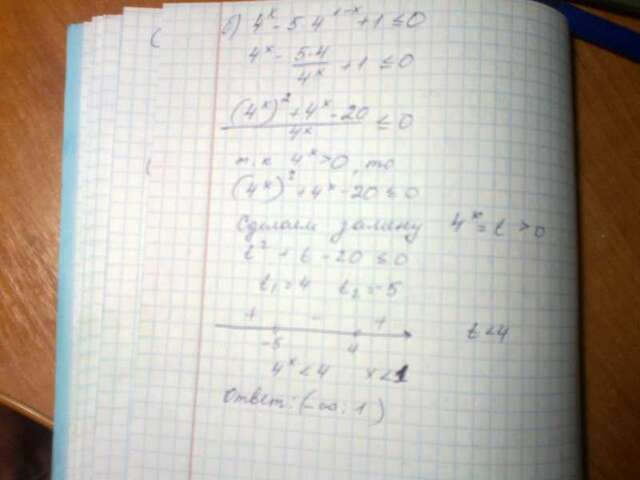 б) 4^x - 5·4^{1-x} + 1 ≤ 0
4^x - 5·4/4^x + 1 ≤ 0
((4^x)^2 + 4^x - 20)/4^x ≤ 0
т.к 4^x > 0, то
(4^x)^2 + 4^x - 20 ≤ 0
Сделаем замену 4^x = t > 0
t^2 + t - 20 ≤ 0
t_1 = 4 t_2 = -5
+ - +
-5 4 t < 4
4^x < 4 x < 1
Ответ: (-∞; 1)